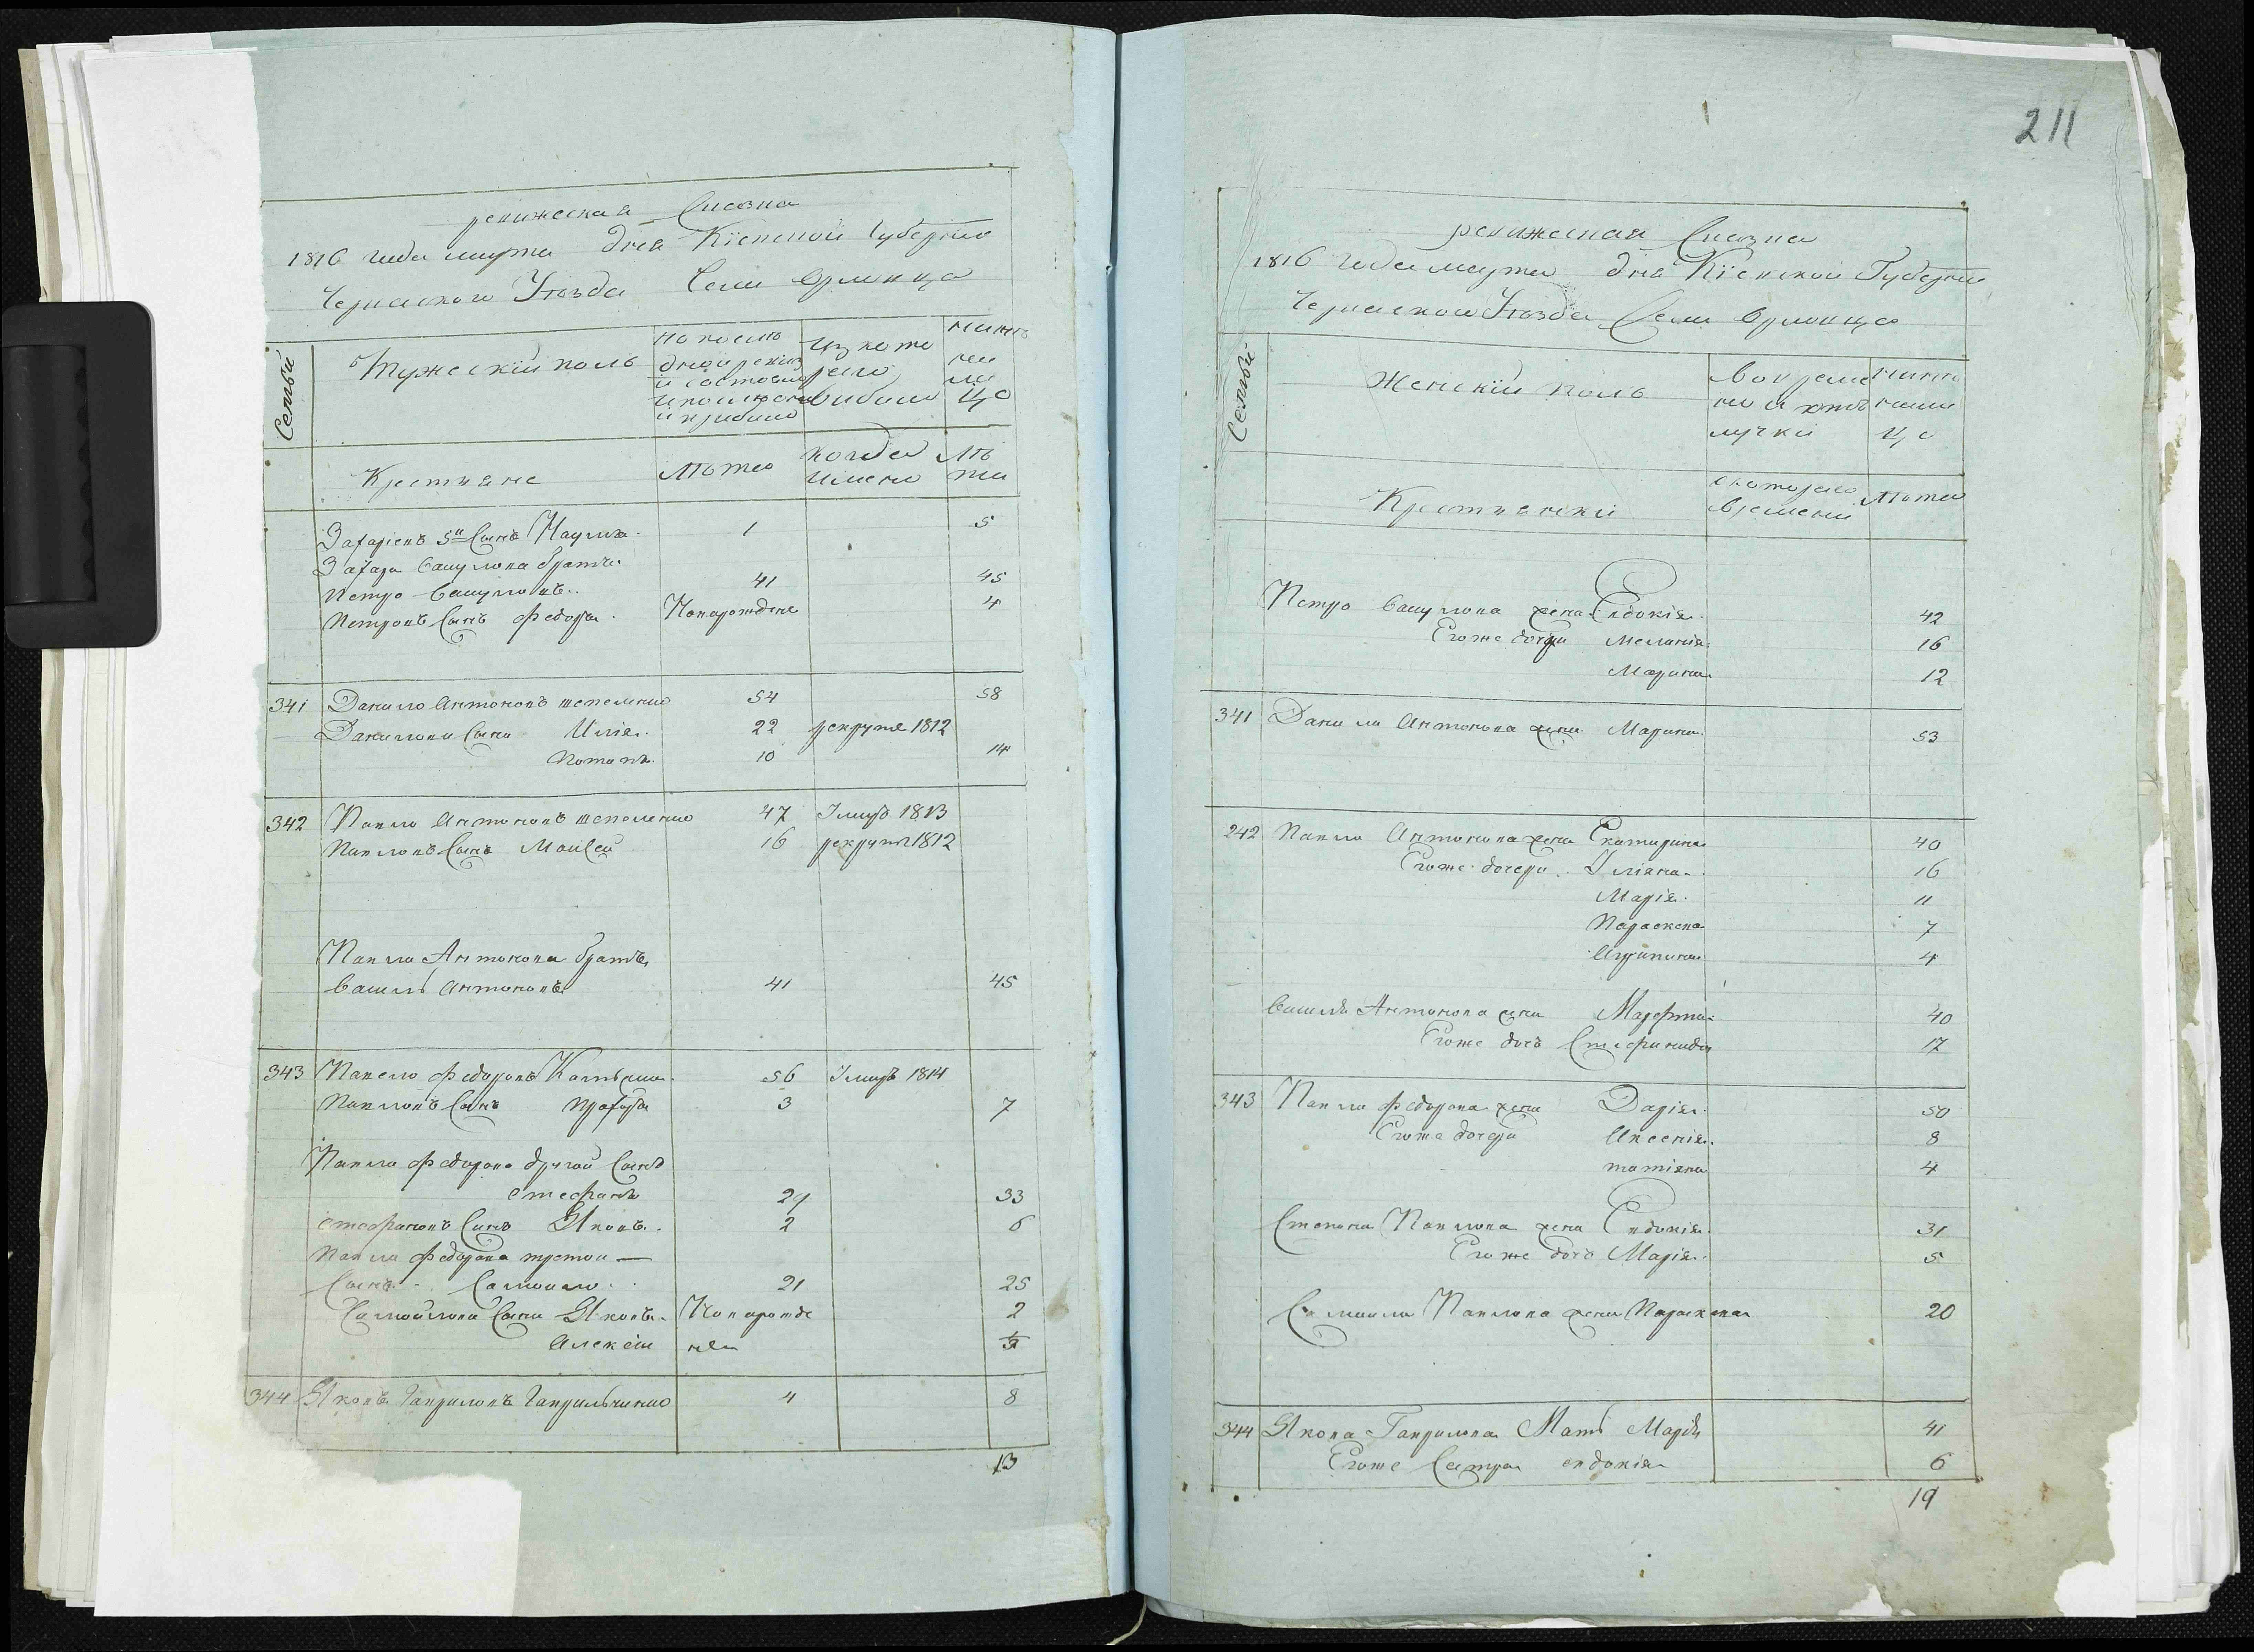 ревижская Сказка
1816 года марта дня Кіевской Губерніи
Черкаского Уѣзда Села Орловца
Семьи
Мужескій полъ
По послѣ
дной ревиз
и состояло
и после оно
й прибыло
Из того
числа
выбыло
Нинѣ
на
ли
цо
Крестяне
Лѣта
когда
имено
Лѣ
та
Захаріевъ 5й Сынъ Наумъ 1 5
Захара Самуилова братъ
Петро Самуиловъ 41 45
Петровъ Сынъ Федоръ Новорожденъ 4
341 Данило Антоновъ шепеленко 54 58
Данилови Сыни Илія 22 рекрутъ 1812
Потапъ 10 14
342 Павло Антоновъ шепеленко 47 Умеръ 1813
Павловъ Сынъ Моисей 16 рекрутъ 1812
Павла Антонова братъ
Василь Антоновъ 41 45
343 Павло Федоровъ 56 Умеръ 1814
Павловъ Сынъ Прохоръ 3 7
Павла Федорова другой Сынъ
Стефанъ 29 33
Стефановъ Сынъ Яковъ 2 6
Павла Федорова третой —
Сынъ Самоило 21 25
Самойлови Сыни Яковъ Новорожде 2
Алексій нен 1/2
344 Яковъ Гавриловъ Гаврильченко 4 8
13
211
ревижская Сказка
1816 года марта дня Кіевской Губерніи
Черкаского Уѣзда Села Орловца
Семьи
Женскій полъ
Во време
ной отъ
лучки
Нинѣ
нали
цо
Крестянки
с котораго
времени
Лѣта
Петра Самуилова жена Евдокія 42
Его же дочери Меланія 16
Марина 12
341 Данила Антонова жена Марина 53
242 Павла Антонова жена Екатирина 40
Его же дочери Уліяна 16
Марія 11
Параскева 7
Агрипина 4
Василя Антонова жена Марфта 40
Его же дочь Стефанида 17
343 Павла Федорова жена Дарія 50
Его же дочери Аксенія 8
татіяна 4
Степана Павлова жена Евдокія 31
Его же дочь Марія 5
Самоила Павлова жена Параскева 20
344 Якова Гаврилова Мать Марія 41
Его же Сестра евдокія 6
19